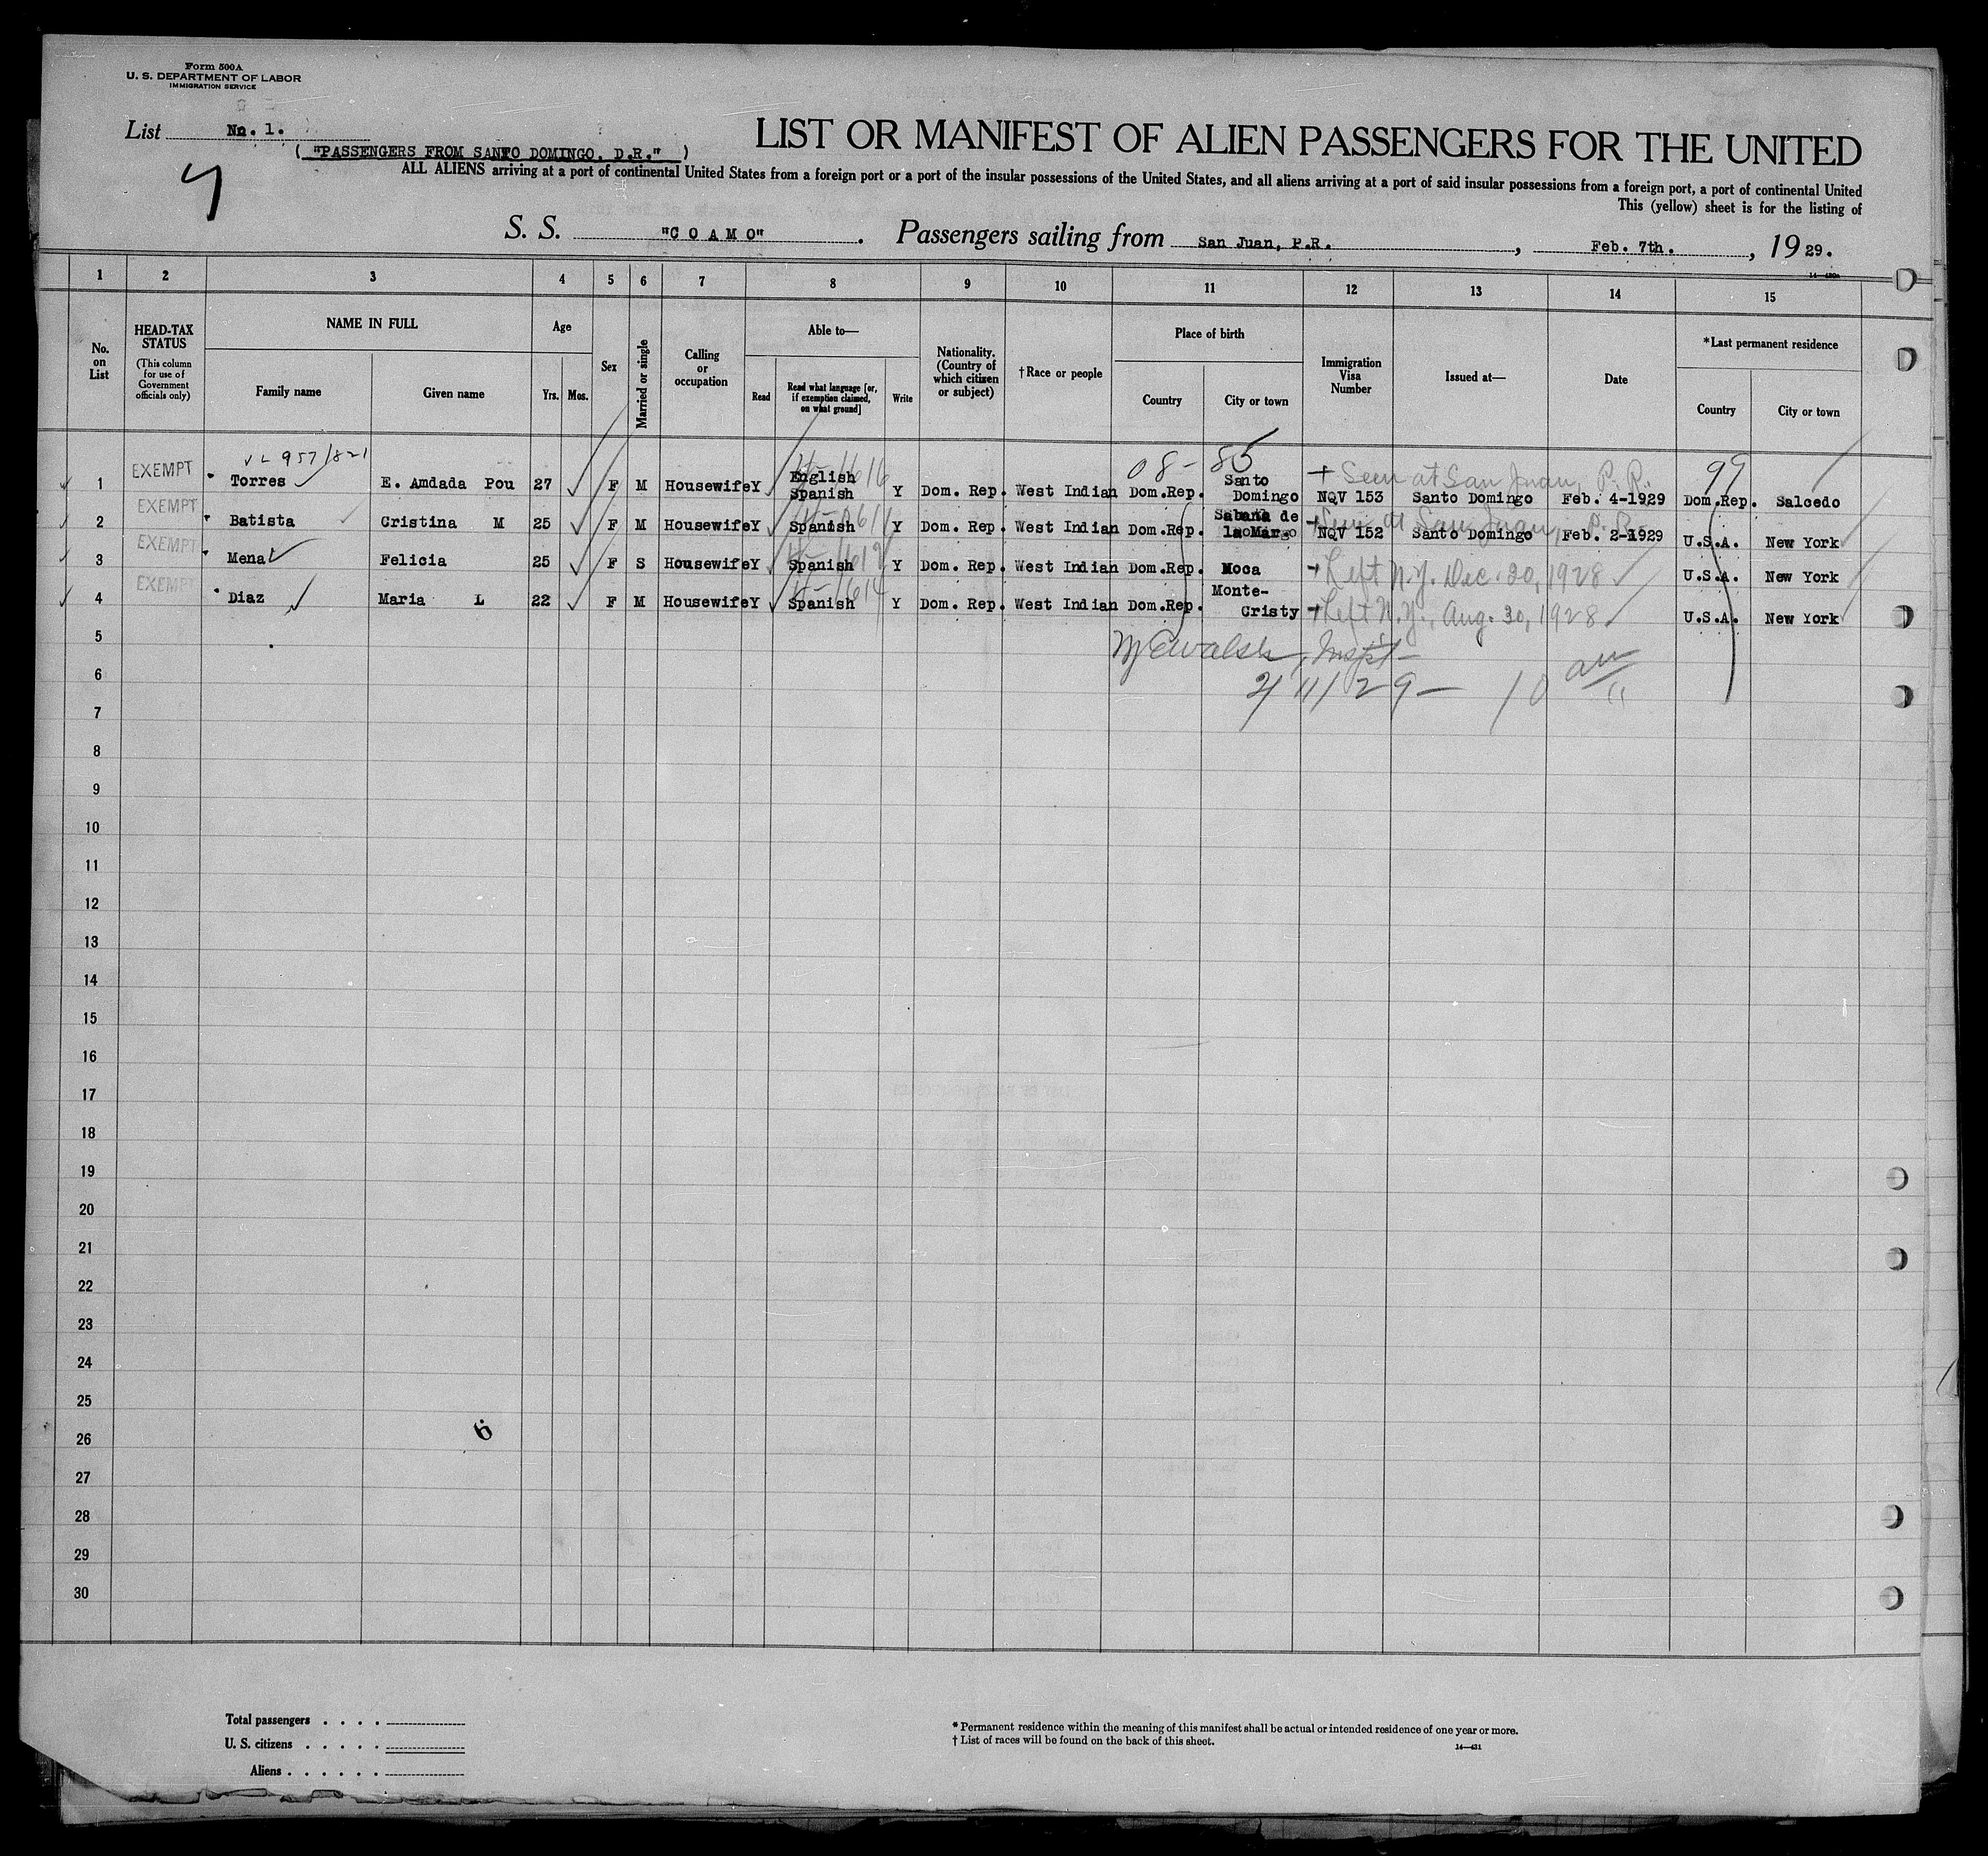 Form 500A
U. S. DEPARTMENT OF LABOR
IMMIGRATION SERVICE
List No. 1.
( "PASSENGERS FROM SANTO DOMINGO, D.R." )
LIST OR MANIFEST OF ALIEN PASSENGERS FOR THE UNITED
ALL ALIENS arriving at a port of continental United States from a foreign port or a port of the insular possessions of the United States, and all aliens arriving at a port of said insular possessions from a foreign port, a port of continental United
This (yellow) sheet is for the listing of
S. S. "COAMO". Passengers sailing from San Juan, P.R., Feb. 7th., 1929.
14—430a
1 2 3 4 5 6 7 8 9 10 11 12 13 14 15
No. on List
HEAD-TAX STATUS
(This column for use of Government officials only)
NAME IN FULL
Family name Given name
Age
Yrs. Mos.
Sex
Married or single
Calling or occupation
Able to—
Read Read what language [or, if exemption claimed, on what ground] Write
Nationality. (Country of which citizen or subject)
†Race or people
Place of birth
Country City or town
Immigration Visa Number
Issued at—
Date
*Last permanent residence
Country City or town
957/821
08-85
99
+ Seen at San Juan, P.R.
1 EXEMPT Torres E. Amdada Pou 27 F M Housewife Y English Spanish Y Dom. Rep. West Indian Dom.Rep. Santo Domingo NQV 153 Santo Domingo Feb. 4-1929 Dom.Rep. Salcedo
+ Seen at San Juan, P.R.
2 EXEMPT Batista Cristina M 25 F M Housewife Y Spanish Y Dom. Rep. West Indian Dom.Rep. Sabana de la Mar NQV 152 Santo Domingo Feb. 2-1929 U.S.A. New York
3 EXEMPT Mena Felicia 25 F S Housewife Y Spanish Y Dom. Rep. West Indian Dom.Rep. Moca Left N.Y. Dec. 20, 1928 U.S.A. New York
4 EXEMPT Diaz Maria L 22 F M Housewife Y Spanish Y Dom. Rep. West Indian Dom.Rep. Monte-Cristy Left N.Y. Aug. 30, 1928 U.S.A. New York
5
Walsh, Inspt-
6
2/11/29- 10 am
7
8
9
10
11
12
13
14
15
16
17
18
19
20
21
22
23
24
25
26
6
27
28
29
30
Total passengers . . . .
U. S. citizens . . . . .
Aliens . . . . . .
* Permanent residence within the meaning of this manifest shall be actual or intended residence of one year or more.
† List of races will be found on the back of this sheet.
14—431